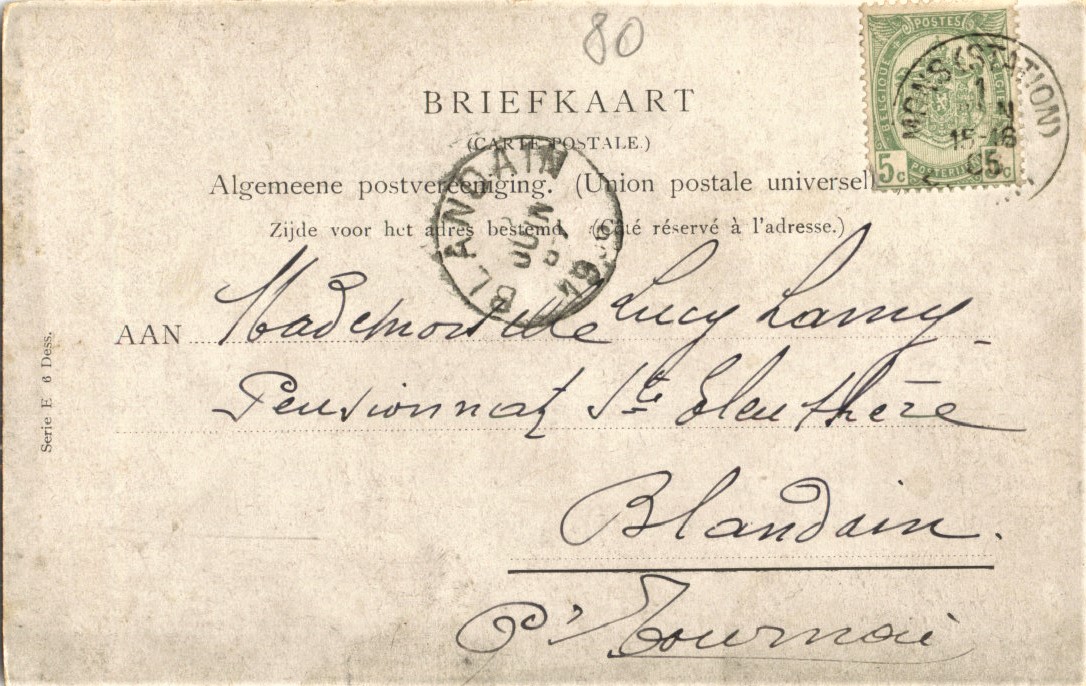 80
BRIEFKAART
(CARTE POSTALE.)
Algemeene postvereeniging. (Union postale universelle
Zijde voor het adres bestemd. (Côté réservé à l'adresse.)
POSTES
BELGIQUE BELGIË
5 c c
POSTERIJEN
MONS (STATION)
1
JUIN
15-16
05
BLANDAIN
JUIN
AAN Mademoiselle Lucy Lamy-
Pensionnat Ste Eleuthère
Blandain.
Pr Tournai
Serie E 6 Dess.